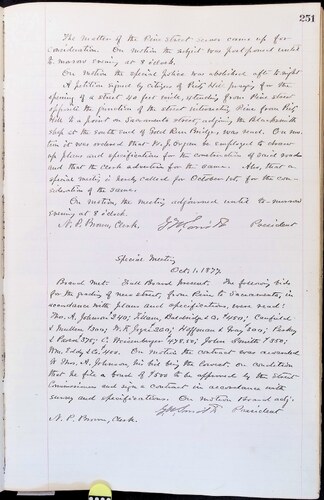 251
The matter of the Pine street sewer came up for
consideration. On motion the subject was postponed until
to-morrow evening at 8 o'clock.
On motion the special police was abolished after to-night.
A petition signed by citizens of Rig Hill praying for the
opening of a street 40 feet wide, starting from Pine street
opposite the junction of the street intersecting Pine from Rig
Hill to a point on Sacramento street, adjoining the Blacksmith
shop at the south end of Good Run Bridge, was read. On mo-
tion it was ordered that W. J. Organ be employed to draw
up plans and specifications for the construction of said road
and that the clerk advertise for the same. Also, that a
special meeting is hereby called for October 1st, for the con-
sideration of the same.
On motion the meeting adjourned until to-morrow
evening at 8 o'clock.
N. P. Brown, Clerk. President
Special Meeting
Oct. 1, 1877.
Board met. Full Board present. The following bids
for the grading of new street, from Pine to Sacramento, in
accordance with plans and specifications, were read:
Thos. A. Johnson 340; & Co. $450; Canfield
& Mullen W. K. 320; Hoffman & 300;
& 375; C. Weisenburger 478.50; John Smith $350;
Wm. Eddy & Co. 400. On motion the contract was awarded
to Thos. A. Johnson, his bid being the lowest, on condition
that he file a bond of $500 to be approved by the Street
Commissioner and sign a contract in accordance with
survey and specifications. On motion Board adj.
President
N. P. Brown, Clerk.